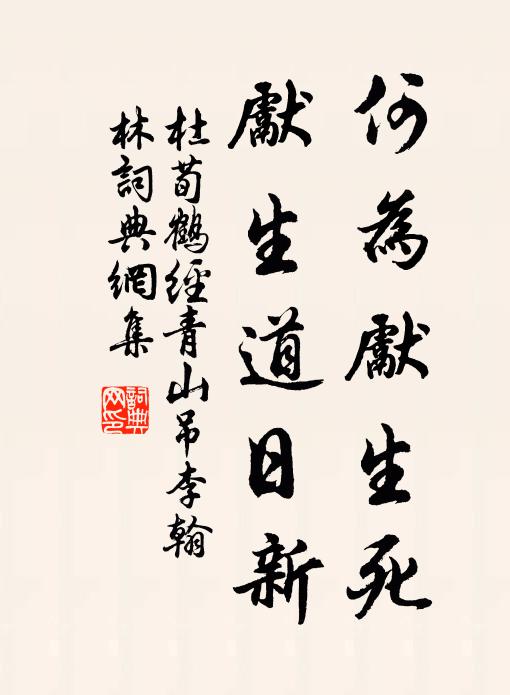 何為獻生死
獻生道日新
杜荀鶴經青山吊李翰
林詞典網集
詞典
网印